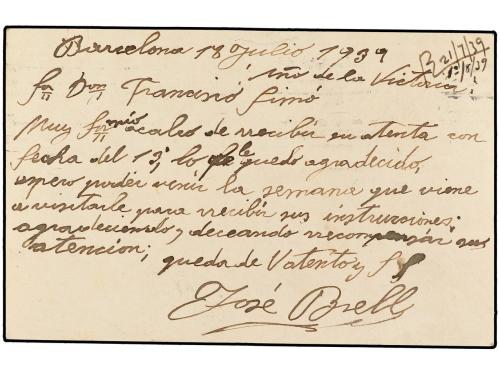 Barcelona 18 Julio 1939
R 21/7/39
Año de la Victoria.
Sr Don Francisco Simó
Muy Sr mío acabo de recibir su atenta con
fecha del 13, lo que le quedo agradecido,
espero poder venir la semana que viene
a visitarle para recibir sus instrucciones;
agradeciendolo y deceando recompensár sus
atencion;
queda de V atento y S S
José Brell